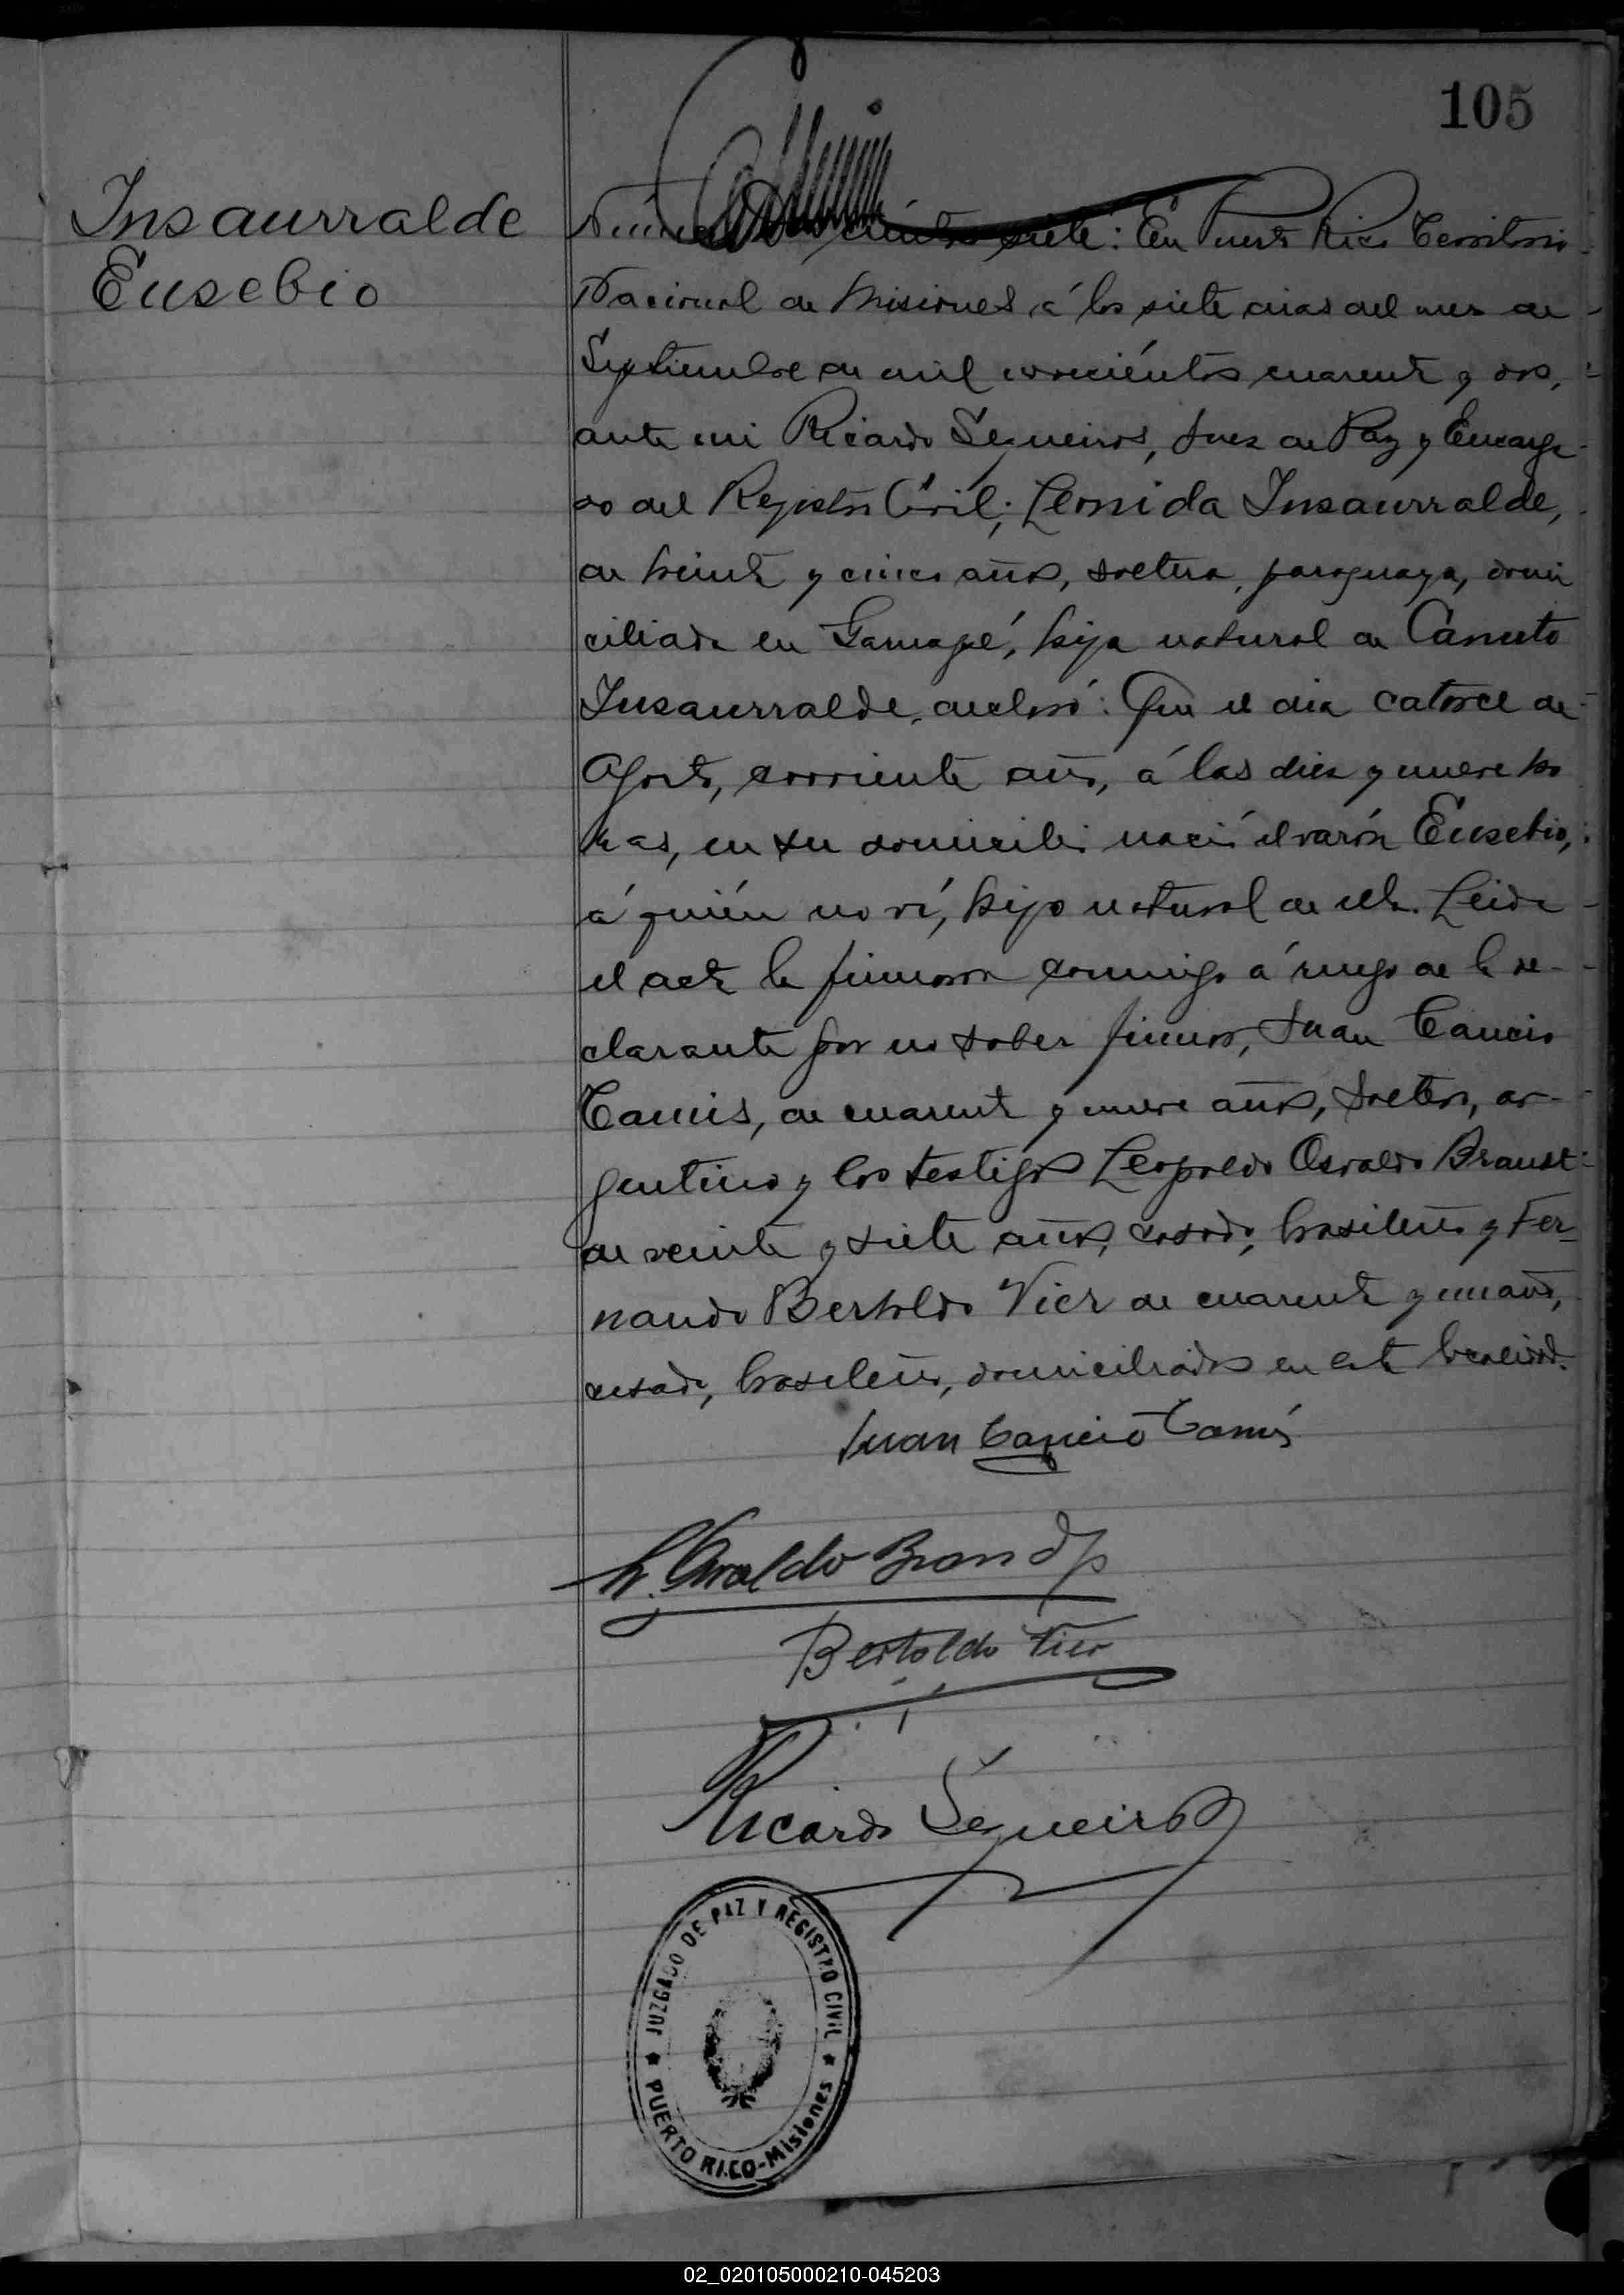 105
Insaurralde
Eusebio
Número doscientos siete: En Puerto Rico Territorio
Nacional de Misiones, á los siete dias del mes de
Septiembre de mil novecientos cuarenta y dos,
ante mi Ricardo Sequeiros, Juez de Paz y Encarga
do del Registro Civil; Leonida Insaurralde,
de treinta y cinco años, soltera, paraguaya, domi
ciliada en Garuapé, hija natural de Canuto
Insaurralde, declaró: Que el dia catorce de
Agosto, corriente año, á las diez y nueve ho
ras, en su domicilio nació el varón Eusebio,
á quién no ví, hijo natural de ella. Leida
el acta la firmaron conmigo á ruego de la de-
clarante por no saber firmar, Juan Cancio
Camis, de cuarenta y nueve años, soltero, ar-
gentino y los testigos Leopoldo Osvaldo Brandt
de veinte y siete años, casado, brasileño y Fer-
nando Bertoldo Vier de cuarenta y un años,
casado, brasileño, domiciliados en esta localidad.
Juan Cancio Camis
L. Osvaldo Brandt
Bertoldo Vier
Ricardo Sequeiros
JUZGADO DE PAZ Y REGISTRO CIVIL
PUERTO RICO-Misiones
02_020105000210-045203